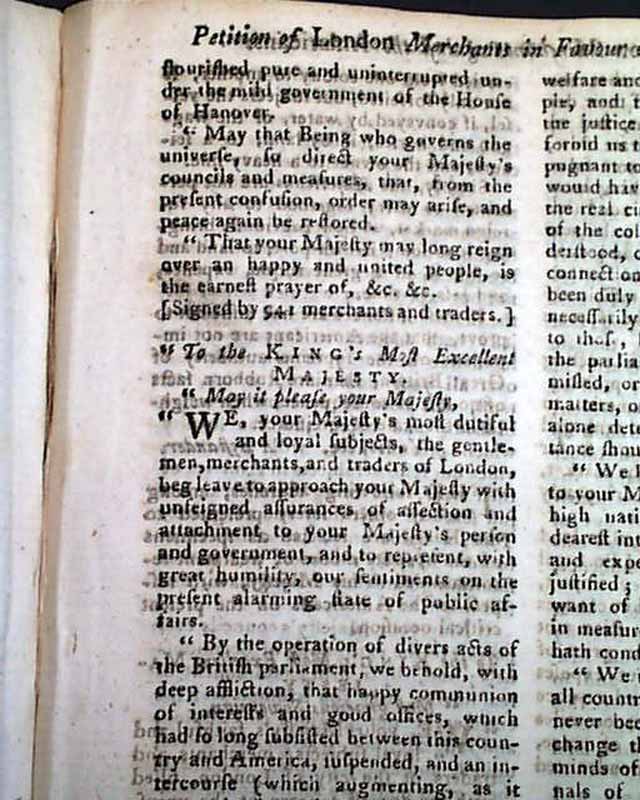 Petition of London Merchants in Favour
flouriſhed pure and uninterrupted un-
der the mild government of the Houſe
of Hanover.
“ May that Being who governs the
univerſe, ſo direct your Majeſty's
councils and meaſures, that, from the
preſent confuſion, order may ariſe, and
peace again be reſtored.
“ That your Majeſty may long reign
over an happy and united people, is
the earneſt prayer of, &c. &c.
[Signed by 941 merchants and traders.]
“ To the KING's Moſt Excellent
MAJESTY.
“ May it pleaſe your Majeſty,
“ WE, your Majeſty's moſt dutiful
and loyal ſubjects, the gentle-
men, merchants, and traders of London,
beg leave to approach your Majeſty with
unfeigned aſſurances of affection and
attachment to your Majeſty's perſon
and government, and to repreſent, with
great humility, our ſentiments on the
preſent alarming ſtate of public af-
fairs.
“ By the operation of divers acts of
the Britiſh parliament, we behold, with
deep affliction, that happy communion
of intereſts and good offices, which
had ſo long ſubſiſted between this coun-
try and America, ſuſpended, and an in-
tercourſe (which augmenting, as it
welfare and
ple, and
the juſtice
forbid us
pugnant to
would
the real
of the
connect
been duly
neceſſarily
to
the
miſled, or
matters,
alone
tance
“ We
to your
high
deareſt
and
juſtified ;
want of
in
hath
“ We
all
never
change
minds of
nals of